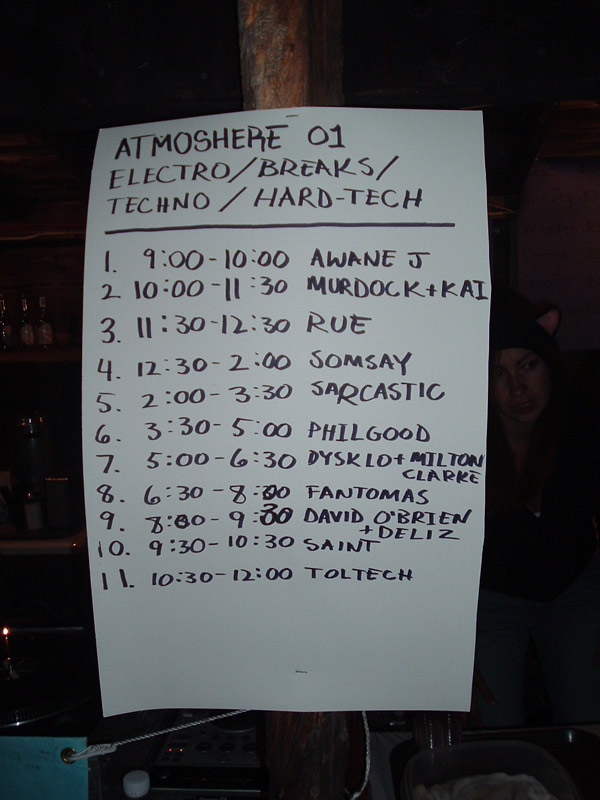 ATMOSHERE 01
ELECTRO/BREAKS/
TECHNO/HARD-TECH
1. 9:00-10:00 AWANE J
2 10:00-11:30 MURDOCK+KAI
3. 11:30-12:30 RUE
4. 12:30-2:00 SOMSAY
5. 2:00-3:30 SARCASTIC
6. 3:30-5:00 PHILGOOD
7. 5:00-6:30 DYSKLO+MILTON
CLARKE
8. 6:30-8:00 FANTOMAS
9. 8:00-9:30 DAVID O'BRIEN
+DELIZ
10. 9:30-10:30 SAINT
11. 10:30-12:00 TOLTECH